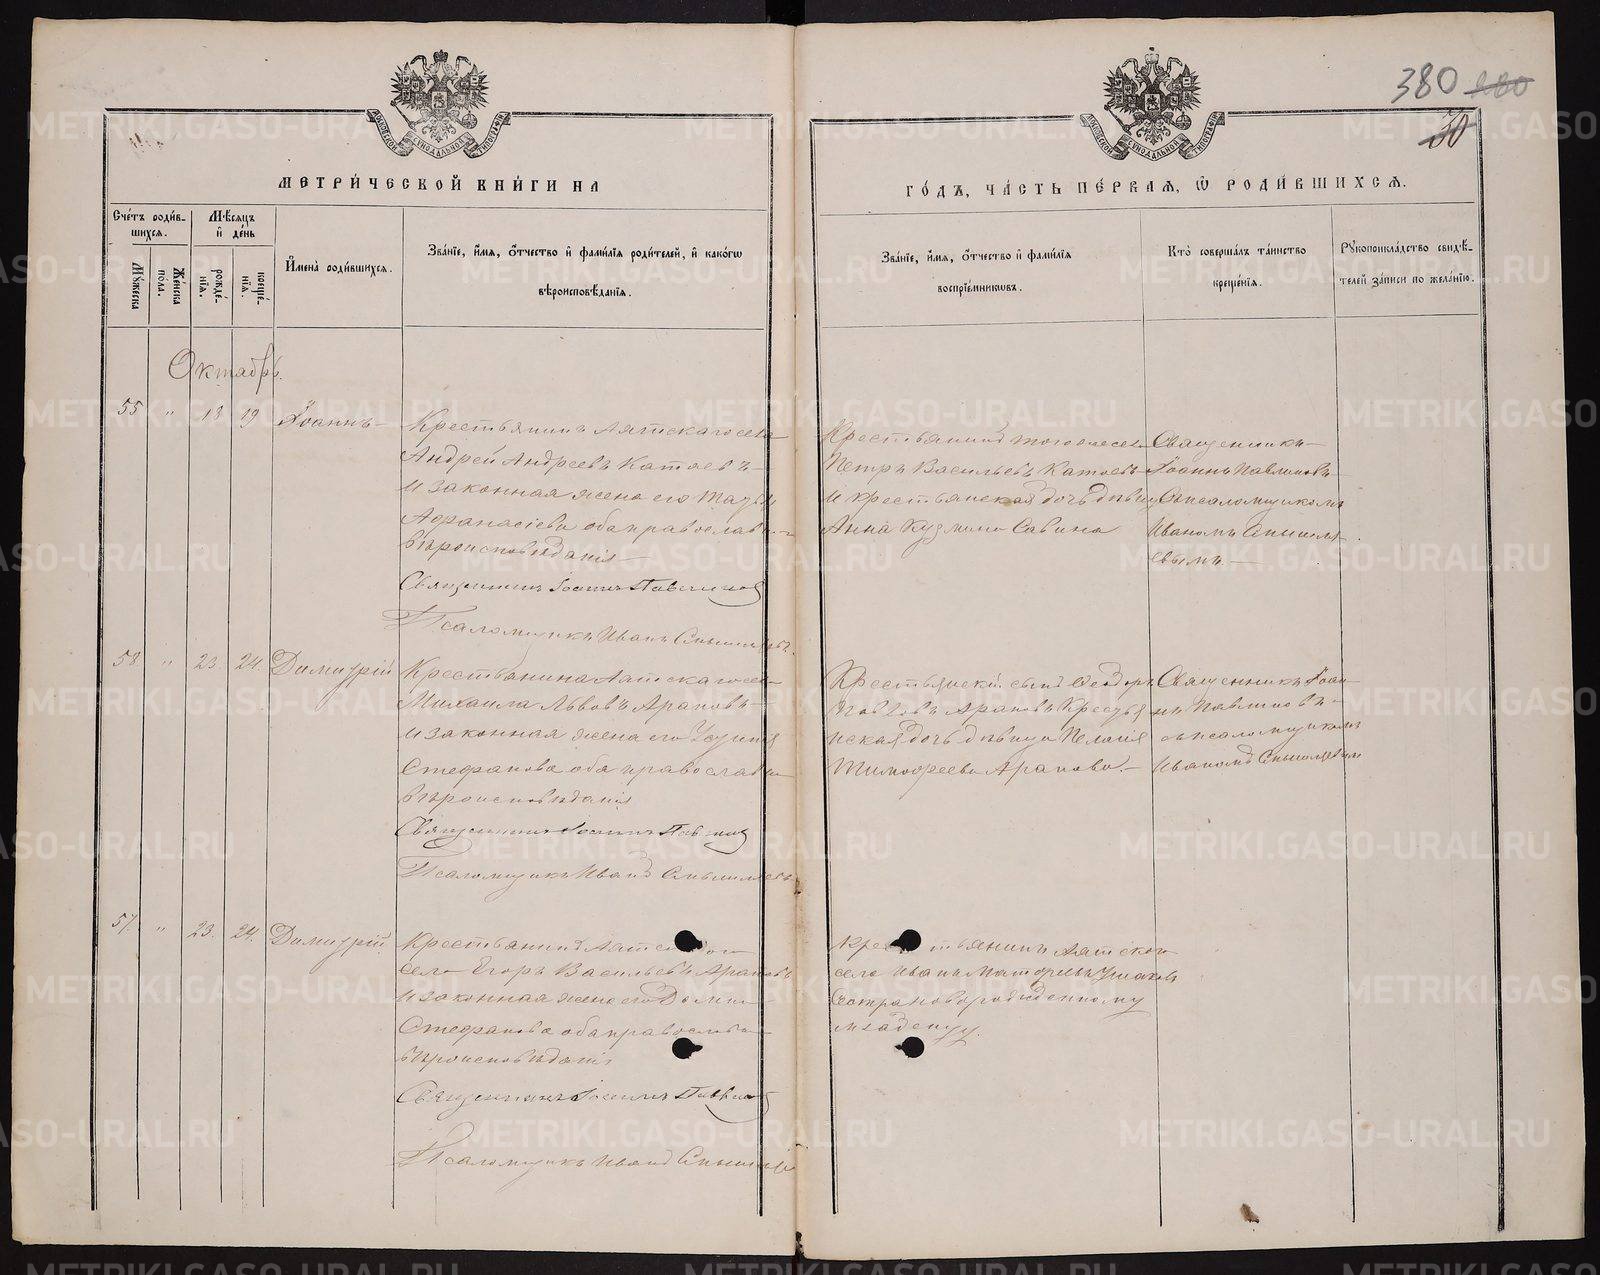 380 280
30
МОСКОВСКОЙ СѴНОДАЛЬНОЙ ТИПОГРАФІИ
МОСКОВСКОЙ СѴНОДАЛЬНОЙ ТИПОГРАФІИ
МЕТРИ́ЧЕСКОЙ КНИ́ГИ НА
ГО́ДЪ, ЧА́СТЬ ПЕ́РВАЯ, Ѡ РОДИ́ВШИХСЯ.
Сче́тъ роди́в-
шихся.
Мꙋ́жеска
Же́нска
по́ла.
Мѣ́сяцъ
и҆ де́нь
рожде́-
нїѧ.
креще́-
нїѧ.
И҆мена̀ роди́вшихся.
Зва́нїе, и҆́мя, ѻ҆́тчество и҆ фами́лїя роди́телей, и҆ како́гѡ
вѣроисповѣ́данїя.
Зва́нїе, и҆́мя, ѻ҆́тчество и҆ фами́лїя
воспрїе́мникѡвъ.
Кто̀ соверша́лъ та́инство
креще́нїя.
Рꙋкоприкла́дство свидѣ́-
телей за́писи по жела́нїю.
Октябрь.
55 " 18 19 Іоаннъ
Крестьянинъ Аятскаго села
Андрей Андреевъ Катаевъ
и законная жена его
Афанасіева оба православн.
вѣроисповѣданія
Священникъ Іоаннъ Павлинов
Псаломщикъ Иванъ
Крестьянинъ тогоже села
Петръ Васильевъ Катаевъ
и крестьянская дочь девица
Анна Кузмина Савина
Священникъ
Іоаннъ Павлиновъ
съ псаломщикомъ
Иваномъ Смышля-
евымъ
58. " 23. 24. Димитрій
Крестьянина Аятскаго села
Михаила Львовъ Араповъ
и законная жена его
Стефанова оба православн
вѣроисповѣданія
Священникъ Іоаннъ Павлинов
Псаломщикъ Иванъ Смышляевъ
Крестьянскій сынъ Феодоръ
Павловъ Араповъ Крестья
нская дочь девица Пелагія
Тимофеева Арапова.
Священникъ Іоан-
нъ Павлиновъ
съ псаломщикомъ
Иваномъ Смышляевым
57. " 23. 24. Димитрій
Крестьянинъ
села Егоръ Васильевъ Араповъ
и законная жена его Домна
Стефанова оба православн
вѣроисповѣданія
Священникъ Іоаннъ Павлинов
Псаломщикъ Иванъ
Крестьянинъ Аятскаго
села Иванъ
новорожденному
младенцу.
METRIKI.GASO-URAL.RU